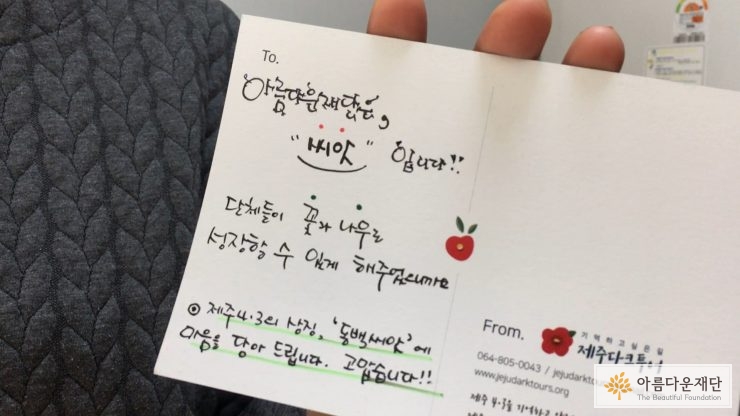 To.
'아름다운재단'은,
"씨앗" 입니다!!
단체들이 꽃과 나무로
성장할 수 있게 해주었으니까요
◎ 제주4·3의 상징, '동백씨앗'에
마음을 담아 드립니다. 고맙습니다!!
From.
기억하고싶은길
제주다크투어
064-805-0043 / jejudarktours
www.jejudarktours.org
제주 4·3을 기억하고
아름다운재단
The Beautiful Foundation